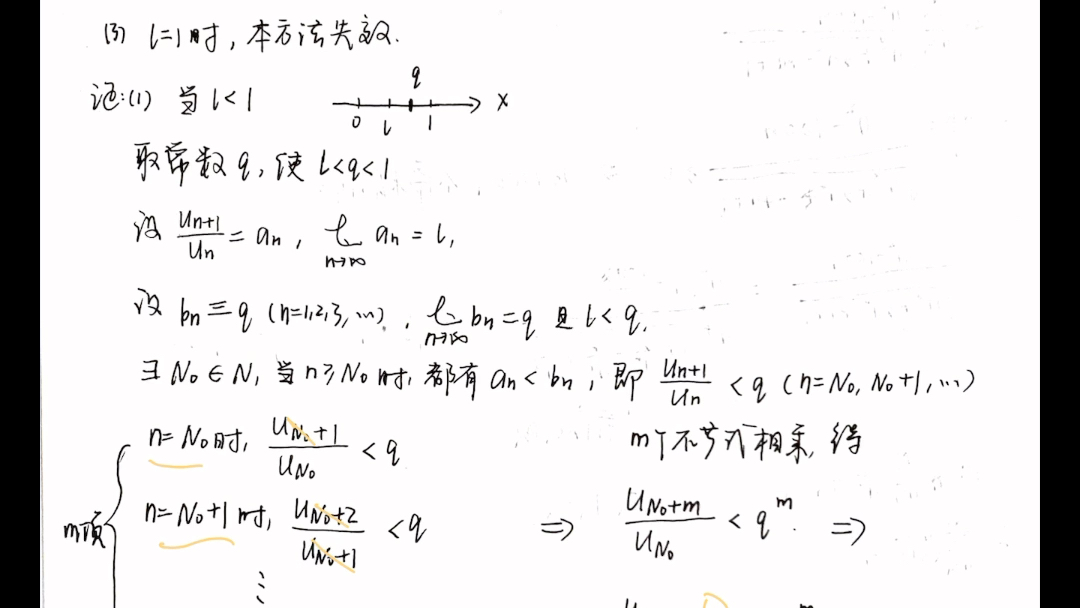 (3) l=1时，本方法失效.
证:(1) 当 l<1
q
0 l 1 x
取常数q，使 l<q<1
设 \frac{u_{n+1}}{u_n} = a_n ， \lim_{n→∞} a_n = l,
设 b_n ≡ q (n=1,2,3,…) ， \lim_{n→∞} b_n = q 且 l<q,
∃ N_0 ∈ N, 当 n≥N_0 时, 都有 a_n < b_n ， 即 \frac{u_{n+1}}{u_n} < q (n=N_0, N_0+1, …)
n=N_0时, \frac{u_{N_0+1}}{u_{N_0}} < q
m个不等式相乘, 得
m项
n=N_0+1 时, \frac{u_{N_0+2}}{u_{N_0+1}} < q
⇒ \frac{u_{N_0+m}}{u_{N_0}} < q^m. ⇒
⋮